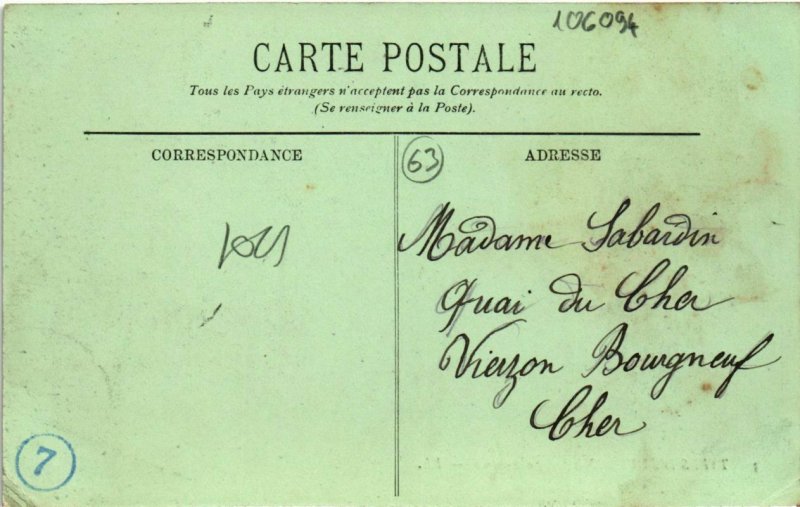 106094
CARTE POSTALE
Tous les Pays étrangers n'acceptent pas la Correspondance au recto.
(Se renseigner à la Poste).
CORRESPONDANCE
63
ADRESSE
Madame Sabardin
Quai du Cher
Vierzon Bourgneuf
Cher
7